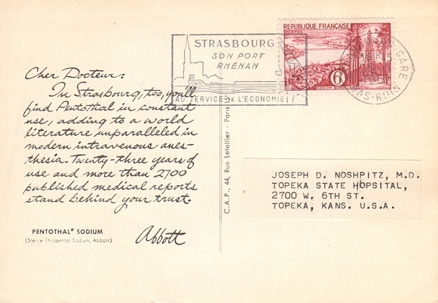 Cher Docteur:
In Strasbourg, too, you'll
find Pentothal in constant
use, adding to a world
literature unparalleled in
modern intravenous anes-
thesia. Twenty-three years of
use and more than 2700
published medical reports
stand behind your trust.
PENTOTHAL® SODIUM
(Sterile Thiopental Sodium, Abbott)
Abbott
STRASBOURG
SON PORT
RHÉNAN
AU SERVICE DE L'ECONOMIE
REPUBLIQUE FRANÇAISE
6F
GARE
BAS-RHIN
C.A.P., 44, Rue Letellier - Paris
JOSEPH D. NOSHPITZ, M.D.
TOPEKA STATE HOPSITAL,
2700 W. 6TH ST.
TOPEKA, KANS. U.S.A.